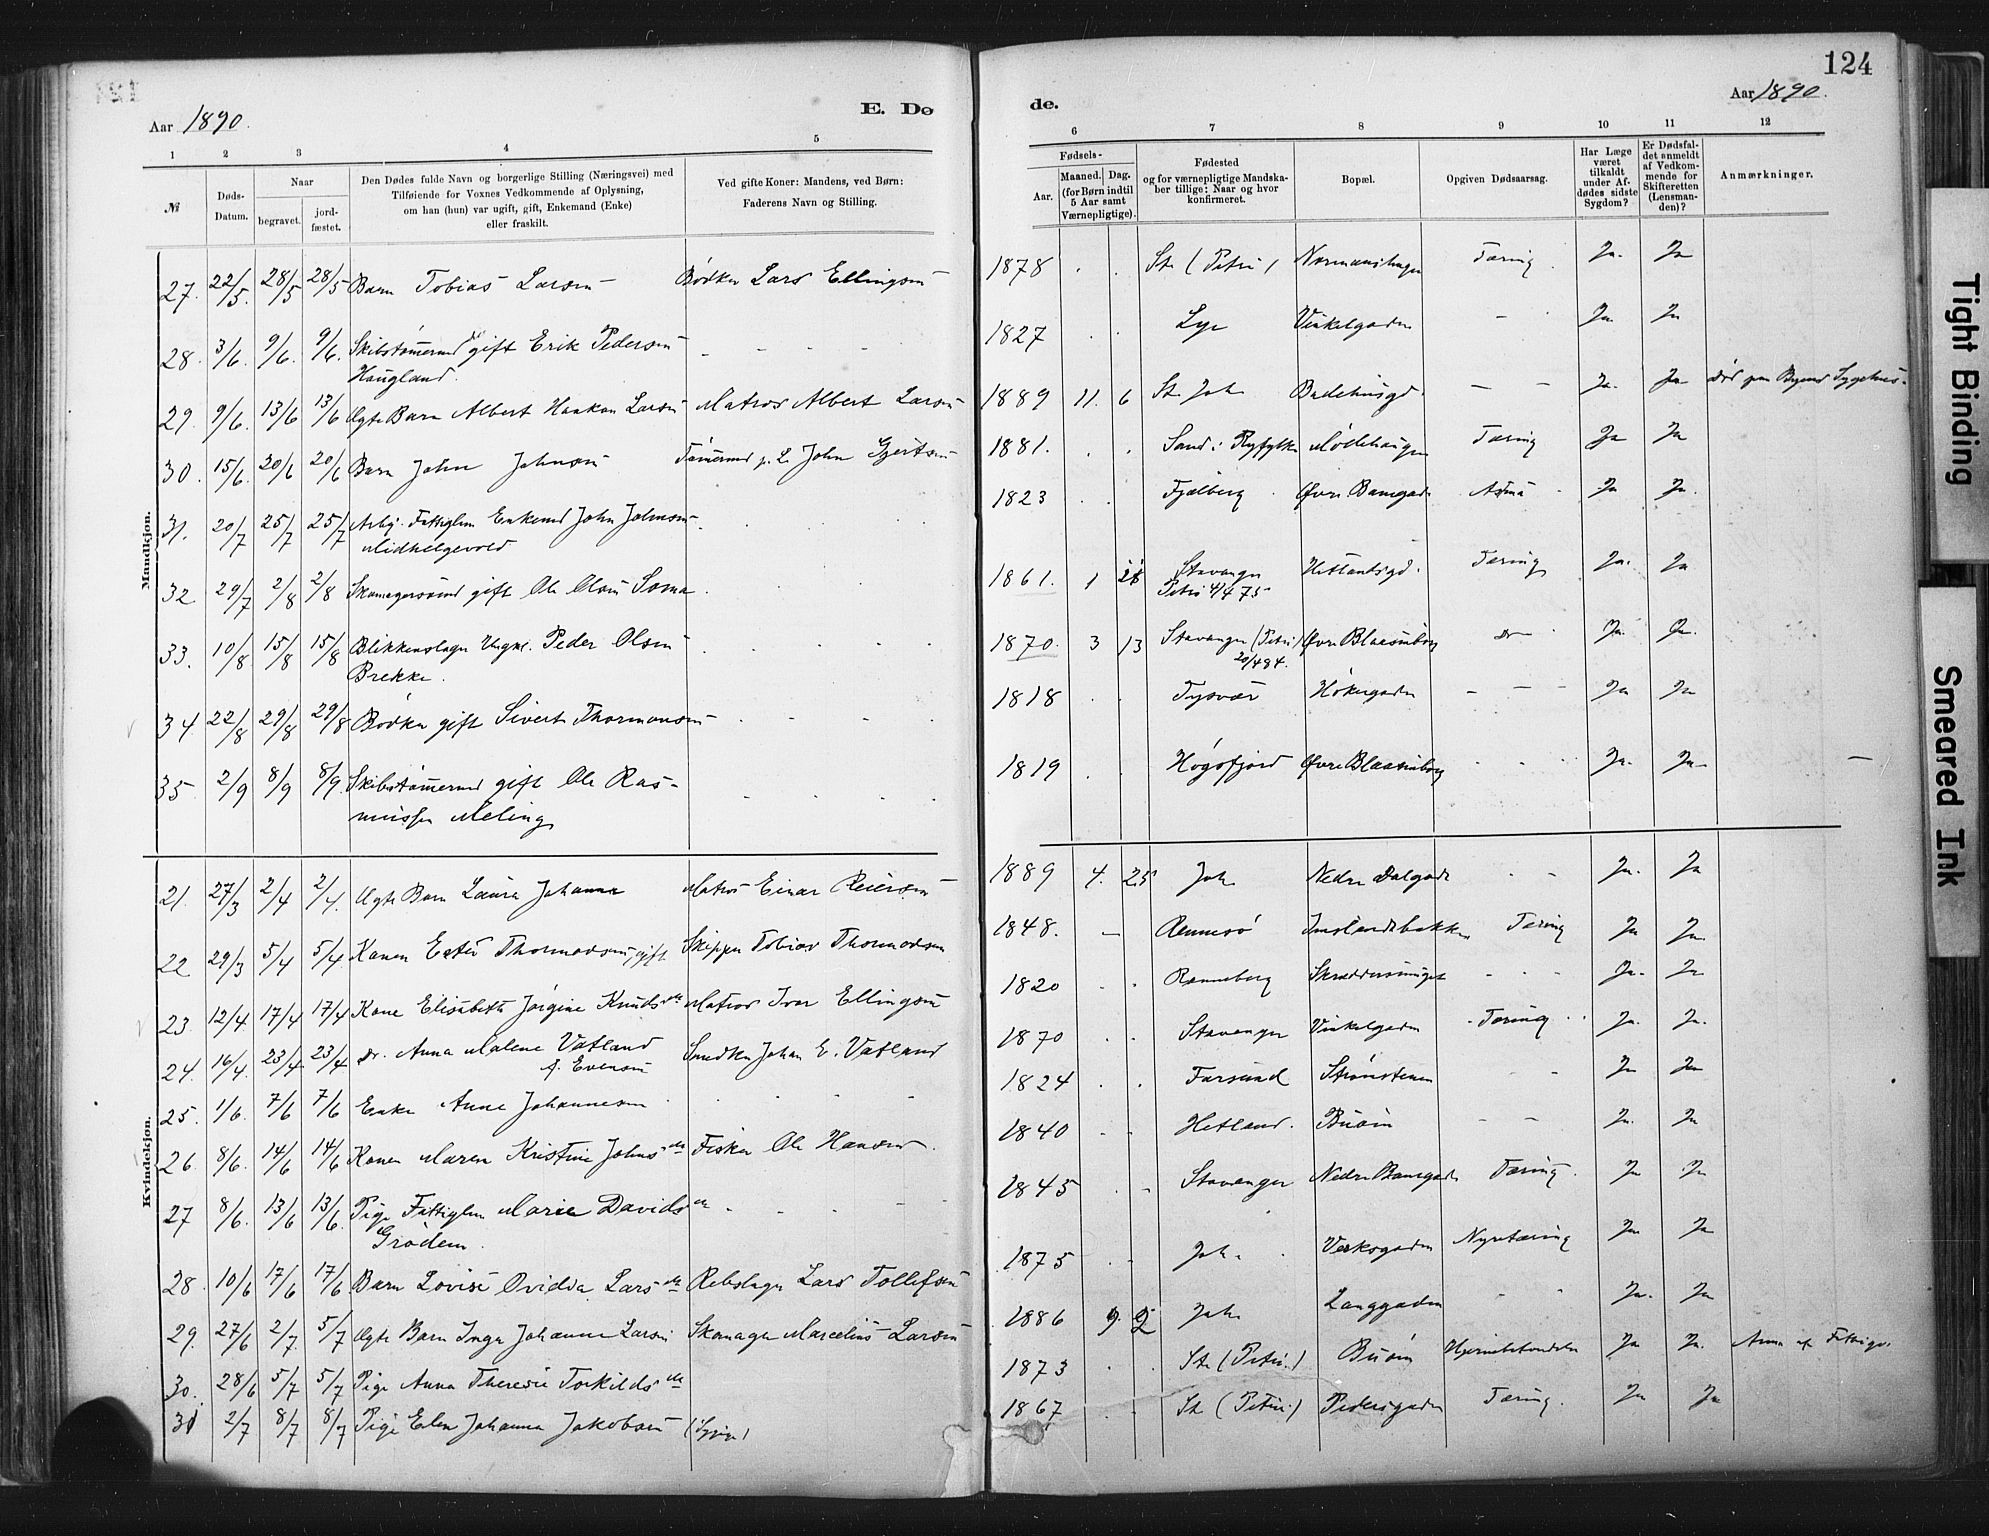 124
Aar 1890.
E. Dø
de.
Aar 1890.
1 2 3 4 5
6 7 8 9 10 11 12
№
Døds-
Datum.
Naar
begravet.
jord-
fæstet.
Den Dødes fulde Navn og borgerlige Stilling (Næringsvei) med
Tilføiende for Voxnes Vedkommende af Oplysning,
om han (hun) var ugift, gift, Enkemand (Enke)
eller fraskilt.
Ved gifte Koner: Mandens, ved Børn:
Faderens Navn og Stilling.
Fødsels-
Aar.
Maaned. Dag.
(for Børn indtil
5 Aar samt
Værnepligtige).
Fødested
og for værnepligtige Mandska-
ber tillige: Naar og hvor
konfirmeret.
Bopæl.
Opgiven Dødsaarsag.
Har Læge
været
tilkaldt
under Af-
dødes sidste
Sygdom?
Er Dødsfal-
det anmeldt
af Vedkom-
mende for
Skifteretten
(Lensman-
den)?
Anmærkninger.
Mandkjøn.
27. 22/5. 28/5 28/5 Barn Tobias Larsen Bødker Lars Ellingsen 1878 St. (Petri) Tæring Ja. Ja
28. 3/6. 9/6. 9/6. gift Erik Pedersen 1827 Lye Vinkelgaden Ja. Ja
Haugland.
29. 9/6. 13/6 13/6 Ægte Barn Albert Haakon Larsen Matros Albert Larsen 1889 11. 6 St. Joh. Badehusgd. Ja. Ja Sygehus.
30. 15/6. 20/6 20/6 Barn John Johnsen John Gjertsen 1881. Sand i Ryfylke Tæring Ja Ja
31. 20/7 25/7 25/7 Enkemd John Johnsen 1823 Fjelberg Øvre Banegade Astma Ja Ja.
Midhelgevold
32 29/7 2/8 2/8 gift Ole Olsen Soma 1861. 1 Stavanger Hetlandsgd. Tæring Ja. Ja
Petri
33. 10/8. 15/8 15/8 Blikkenslager Ungk. Peder Olsen 1870. 3 13 Stavanger (Petri) Øvre Blaasenborg Do Ja.
Brekke.
20/4 84.
34 22/8 29/8 29/8 Bødker gift Sivert Thormodsen 1818 Tysvær Høkergaden Ja Ja
35 2/9 8/9 8/9. gift Ole Ras-
mussen Meling 1819 Høgsfjord Øvre Blaasenborg Ja. Ja.
Kvindekjøn.
21. 27/3 2/4 2/4. Ægte Barn Laura Johanne Matros Einar Reiersen 1889 4. 25 Joh. Nedre Dalgade Ja. Ja
22 29/3 5/4 5/4. Konen Ester Thormodsen, gift Skipper Tobias Thormodsen 1848. Rennesø Tæring Ja Ja.
23 12/4 17/4 17/4 Kone Elisabeth Jørgine Knudsdtr Matros Ivar Ellingsen 1820 Ranneberg Ja. Ja
24. 16/4. 23/4 23/4 Do. Anna Malene Vatland Johan E. Vatland 1870 Stavanger Vinkelgaden Tæring Ja. Ja.
f. Evensen
25. 1/6. 7/6 7/6 Enke Anne Johannesen 1824 Farsund Strømstenen Ja Ja
26. 8/6. 14/6 14/6 Konen Maren Kristine Johnsdtr Fisker Ole Hansen 1840 Hetland. Buøen Ja. Ja
27 8/6. 13/6 13/6. Pige Fattiglem Marie Davidsdtr 1845 Stavanger Nedre Banegade Tæring Ja Ja
Grødem.
28. 10/6 17/6 17/6 Barn Lovise Ovidia Larsdtr Rebslager Lars Tollefsen 1875 Joh. Verksgaden Nyretæring Ja Ja
29. 27/6 2/7 5/7 Ægte Barn Inga Johanne Larsen Skomager Marcelius Larsen 1886 9. 2 Joh. Langgaden Ja. Ja
30. 28/6 5/7 5/7 Pige Anna Theresie Torkildsdtr 1873 St. (Petri.) Buøen Hjernebetændelse Ja Ja.
31 2/7 8/7 8/7 Pige Elen Johanna Jakobsen 1867 St. (Petri.) Pedersgaden Tæring. Ja Ja
Tight Binding
Smeared Ink